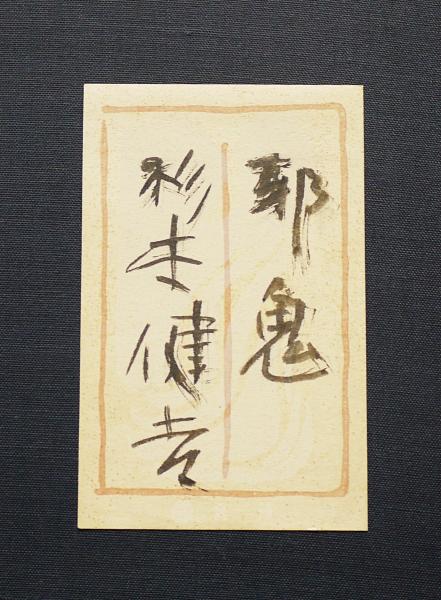 邪鬼
杉本健吉